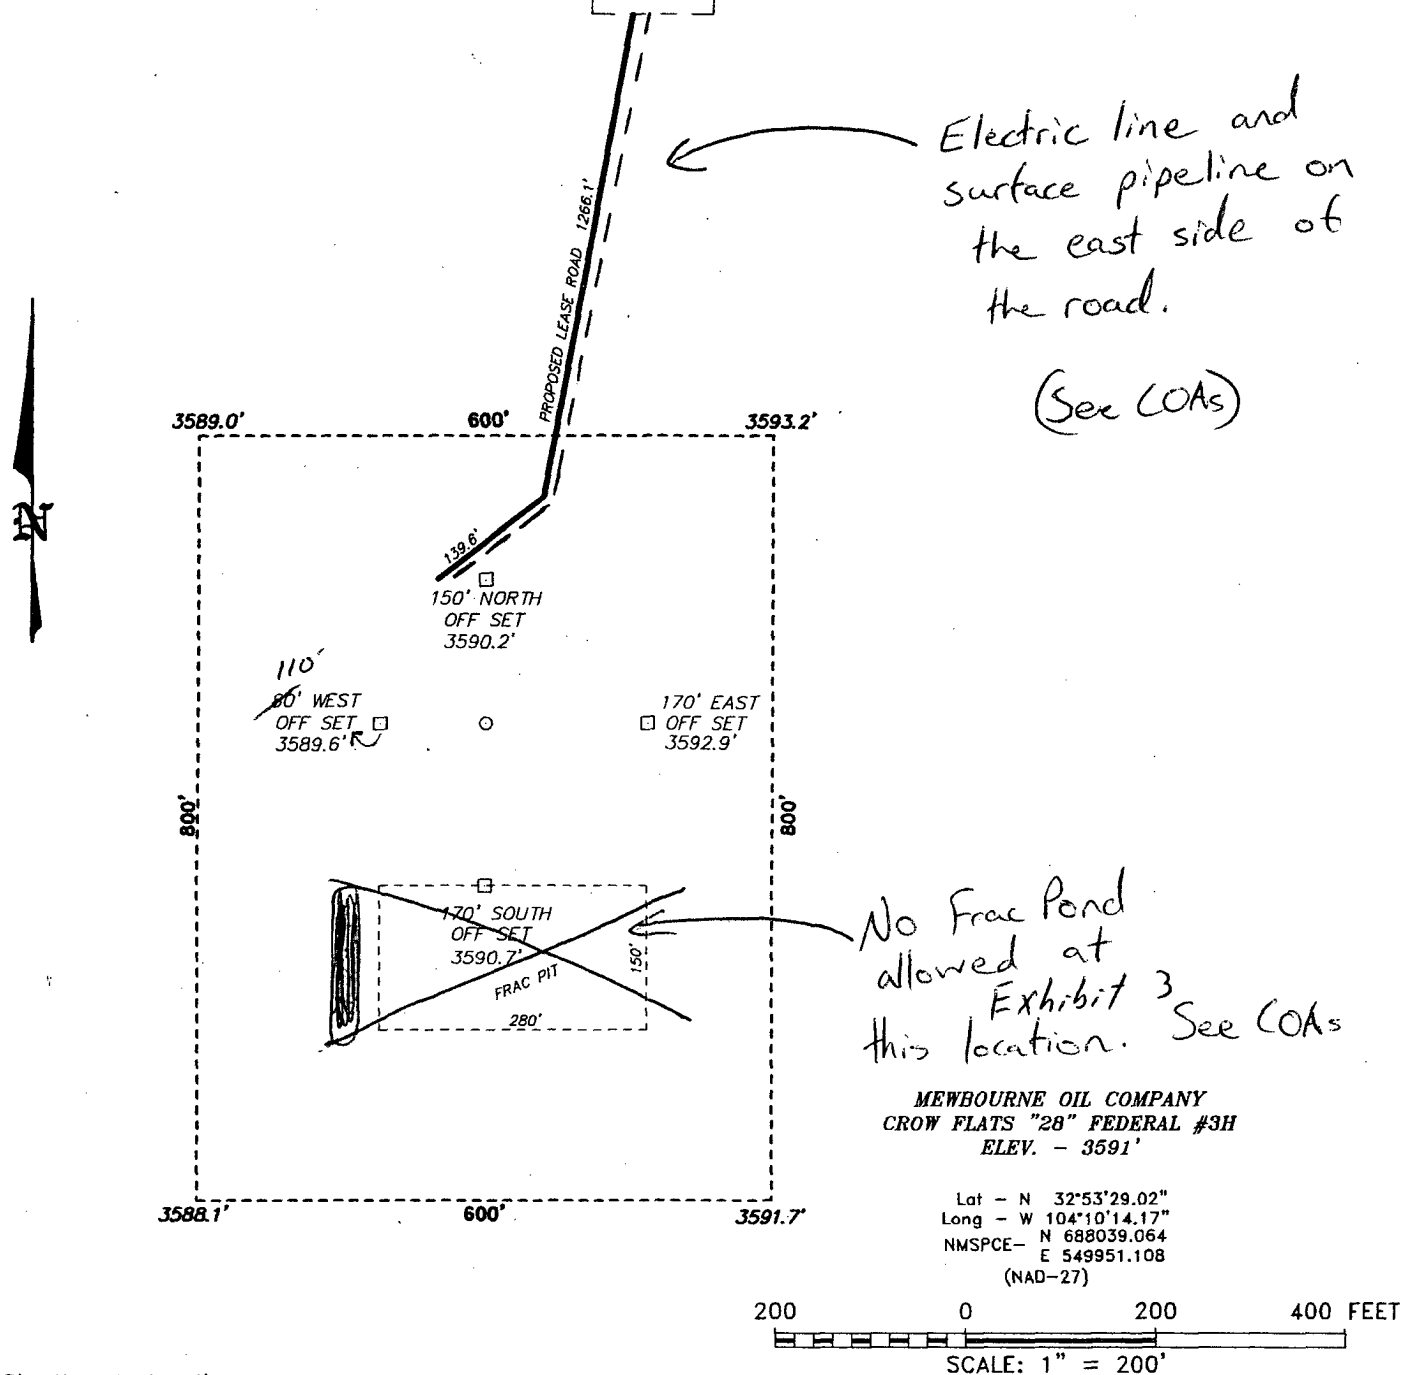 Electric line and
surface pipeline on
the east side of
the road.
(See COAs)
PROPOSED LEASE ROAD 1266.1'
3589.0'
600'
3593.2'
N
139.6'
150' NORTH
OFF SET
3590.2'
110'
80' WEST
OFF SET
3589.6'
170' EAST
OFF SET
3592.9'
800'
800'
170' SOUTH
OFF SET
3590.7'
FRAC PIT
150'
280'
No Frac Pond
allowed at
Exhibit 3
this location. See COAs
MEWBOURNE OIL COMPANY
CROW FLATS "28" FEDERAL #3H
ELEV. - 3591'
3588.1'
600'
3591.7'
Lat - N 32°53'29.02"
Long - W 104°10'14.17"
NMSPCE- N 688039.064
E 549951.108
(NAD-27)
200 0 200 400 FEET
SCALE: 1" = 200'